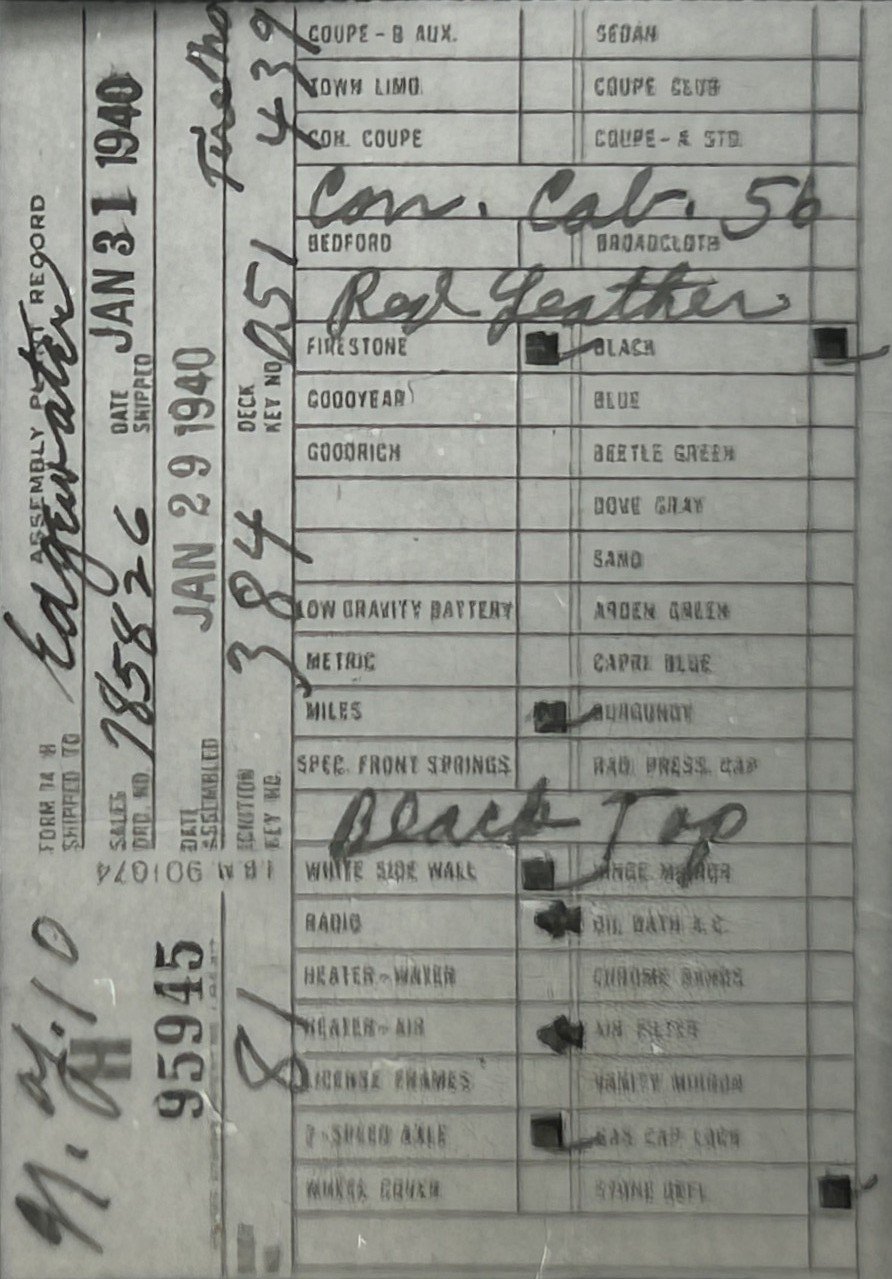 FORM 74 B ASSEMBLY PLANT RECORD
SHIPPED TO Edgewater
SALES ORD. NO. 785826 DATE SHIPPED JAN 31 1940
DATE ASSEMBLED JAN 29 1940
IGNITION KEY NO. 384 DECK KEY NO. 251 439
I.B.M. 901074
H
95945
81
COUPE - B AUX. SEDAN
TOWN LIMO. COUPE CLUB
CON. COUPE COUPE - A STD.
Con. Cab. 56
BEDFORD BROADCLOTH
Red Leather
FIRESTONE BLACK
GOODYEAR BLUE
GOODRICH BEETLE GREEN
DOVE GRAY
SAND
LOW GRAVITY BATTERY ARDEN GREEN
METRIC CAPRI BLUE
MILES BURGUNDY
SPEC. FRONT SPRINGS RAD. PRESS. CAP
Black Top
WHITE SIDE WALL HINGE MIRROR
RADIO OIL BATH A.C.
HEATER-WATER CHROME
HEATER-AIR AIR FILTER
LICENSE FRAMES VANITY MIRROR
2-SPEED AXLE GAS CAP LOCK
WHEEL COVER STONE DEFL.